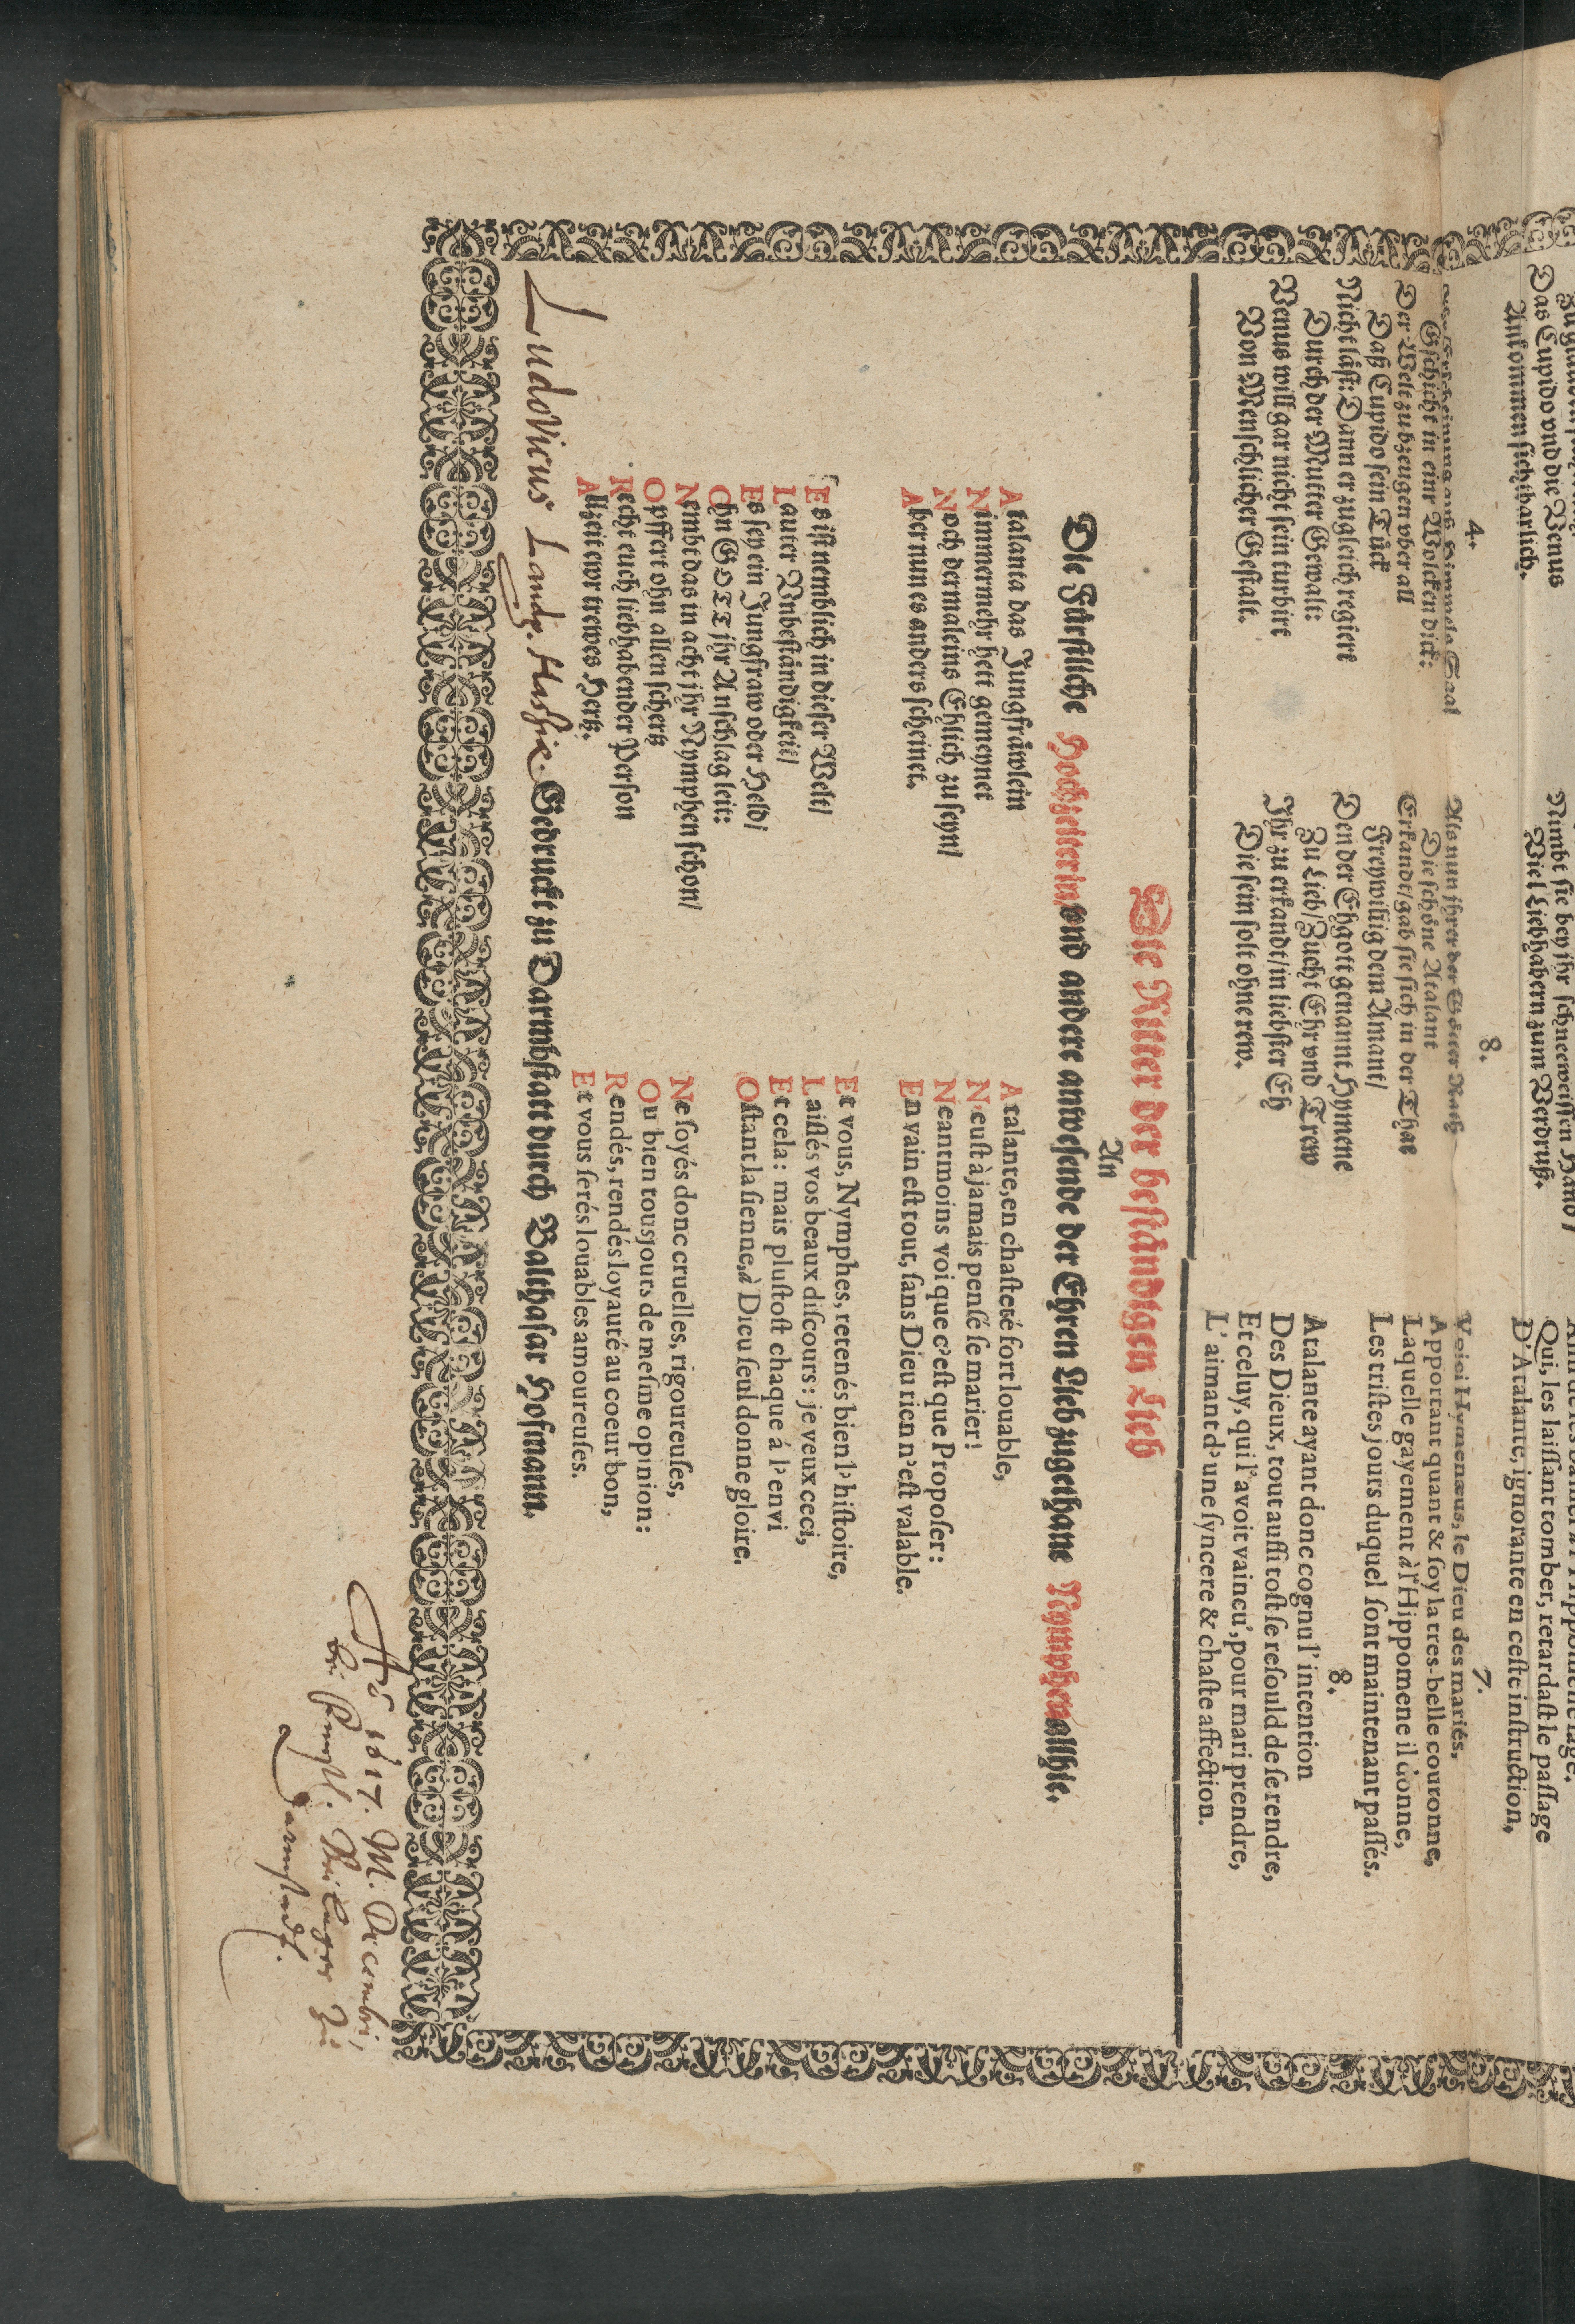 Das Cupido vnd die Venus
Ankommen sichtbarlich.
4.
Gschicht in einr Wolcken dick:
Der Welt zubzeugen vber all
Daß Cupido sein Tück
Nicht läst: Dann er zugleich regiert
Durch der Mutter Gewalt:
Venus will gar nicht sein turbirt
Von Menschlicher Gestalt.
Nimbt sie bey jhr schneeweissen Hand/
Viel Liebhabern zum Verdruß.
8.
Als nun jhrer der Götter Rath
Die schöne Atalant
Erkandt/gab sie sich in der That
Freywillig dem Amant/
Den der Ehgott genannt Hymene
Zu Lieb/Zucht Ehr vnd Trew
Jhr zu erkandt/in liebster Eh
Die sein solt ohne rew.
Qui, les laissant tomber, retardast le passage
D'Atalante, ignorante en ceste instruction,
7.
Voici Hymenæus, le Dieu des mariés,
Apportant quant & soy la tres-belle couronne,
Laquelle gayement à l'Hippomene il donne,
Les tristes jours duquel sont maintenant passés.
8.
Atalante ayant donc cognu l'intention
Des Dieux, tout aussi tost se resould de se rendre,
Et celuy, qui l'avoit vaincu, pour mari prendre,
L'aimant d'une syncere & chaste affection.
Die Ritter der beständigen Lieb
An
Die Fürstliche Hochzeiterin/vnd andere anwesende der Ehren Lieb zugethane Nymphen allhie.
Atalanta das Jungfräwlein
Nimmermehr hett gemeynet
Noch dermaleins Ehlich zu seyn/
Aber nun es anders scheinet.
Es ist nemblich in dieser Welt/
Lauter Vnbeständigkeit/
Es sey ein Jungfraw oder Held/
Ohn GOTT jhr Anschlag leit:
Nembt das in acht jhr Nymphen schon/
Opffert ohn allen schertz
Recht euch liebhabender Person
Allzeit ewr trewes Hertz.
Atalante, en chasteté fort louable,
N'eust à jamais pensé se marier!
Neantmoins voi que c'est que Proposer:
En vain est tout, sans Dieu rien n'est valable.
Et vous, Nymphes, retenés bien l'histoire,
Laissés vos beaux discours: je veux ceci,
Et cela: mais plustost chaque á l'envi
Ostant la sienne, à Dieu seul donne gloire.
Ne soyés donc cruelles, rigoureuses,
Ou bien tousjours de mesme opinion:
Rendés, rendés loyauté au coeur bon,
Et vous serés louables amoureuses.
Ludovicus Landg. Hassiæ. Gedruckt zu Darmbstatt durch Balthasar Hofmann.
Aō 1617. M. Decembri,
bei Fürstl. Beilager zu
Darmstadt.